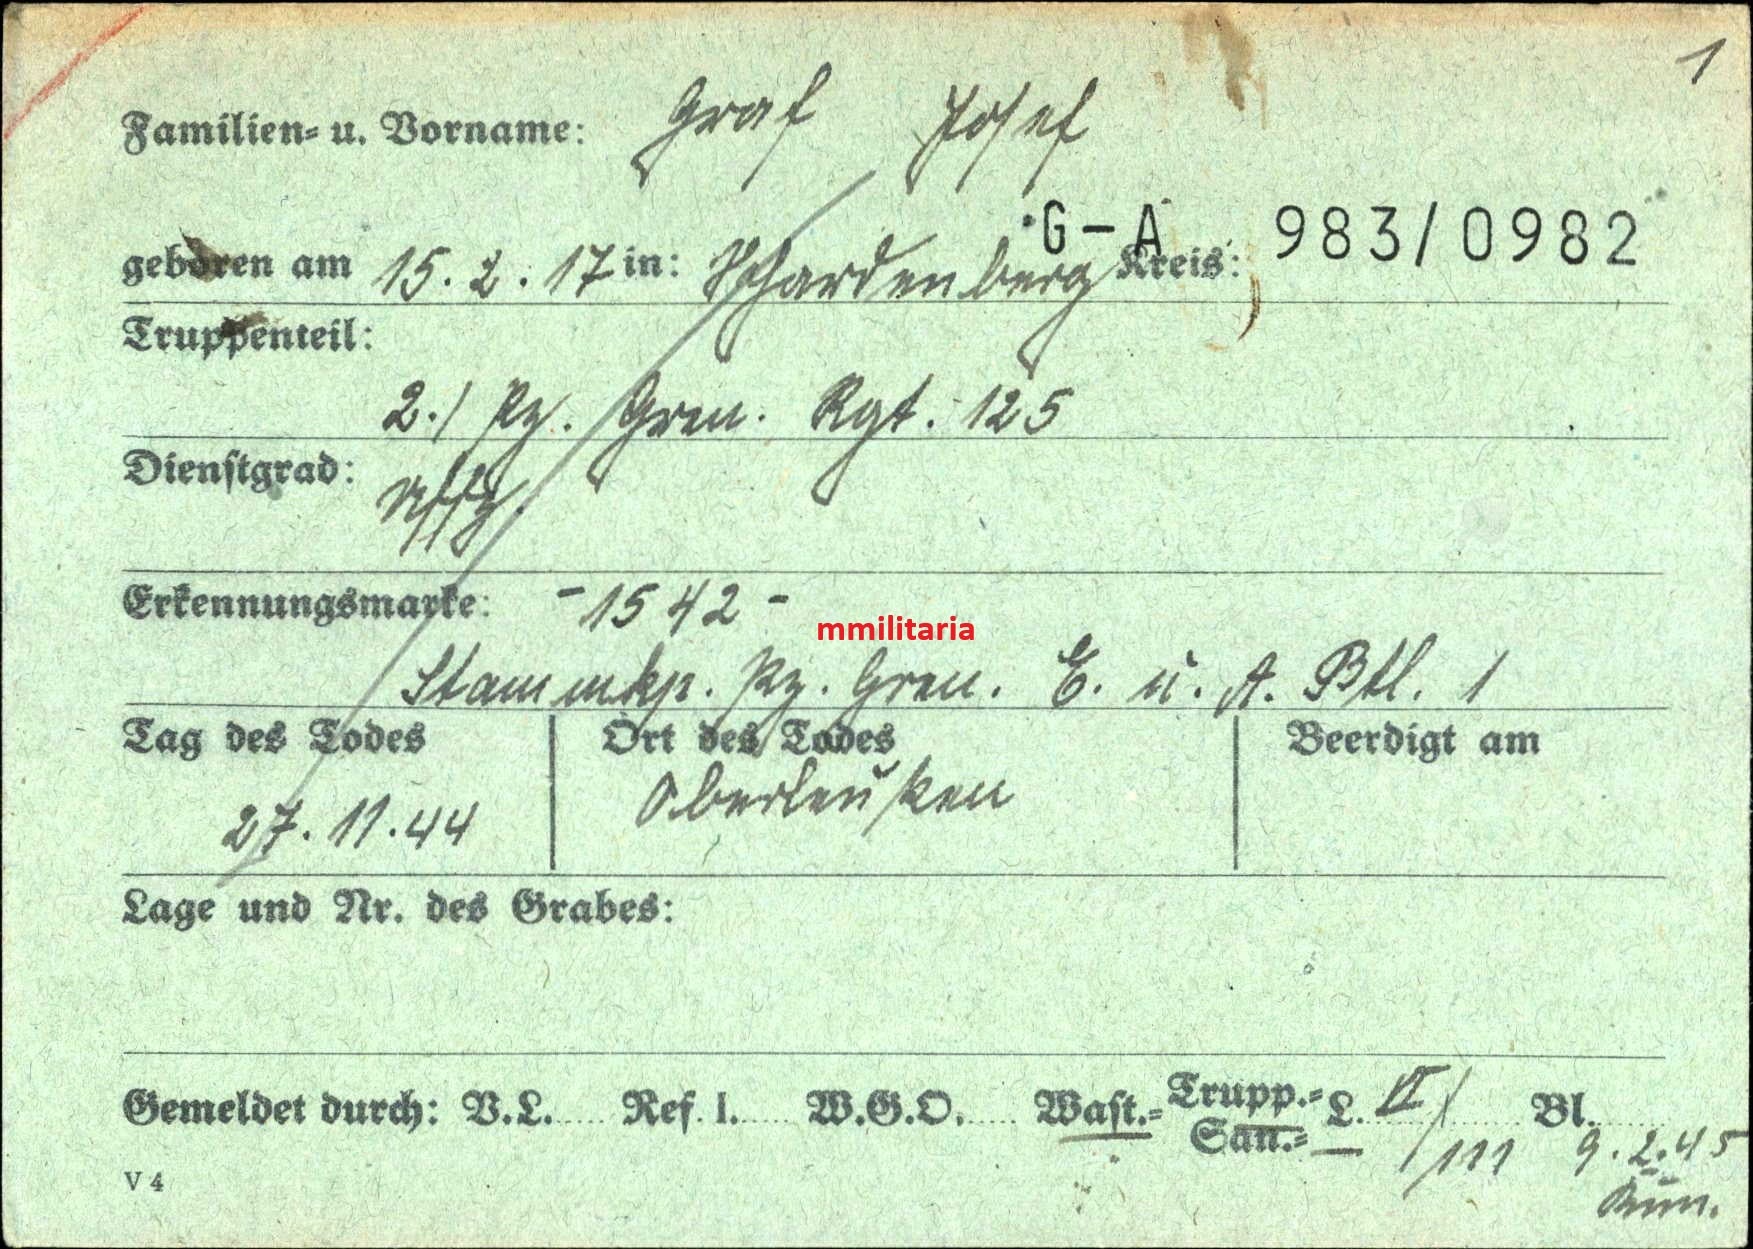 1
Familien- u. Vorname: Graf Josef
G-A 983/0982
geboren am 15.2.17 in: Schardenberg Kreis:
Truppenteil:
2./ Pz. Gren. Rgt. 125
Dienstgrad: Uffz.
Erkennungsmarke: -1542-
mmilitaria
Stammkp. Pz. Gren. E. u. A. Btl. 1
Tag des Todes Ort des Todes Beerdigt am
27.11.44 Oberleuken
Lage und Nr. des Grabes:
Gemeldet durch: V.L. Ref. I. W.G.O. Wast.- Trupp.- L. VI/111 Bl.
San.- 9.2.45
V 4